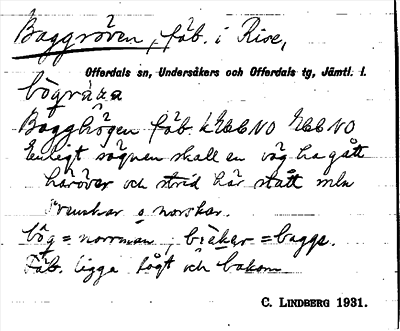 Baggröven, fäb. i Rise,
Offerdals sn, Undersåkers och Offerdals tg, Jämtl. l.
bögröva
Bagghögen fäb.
Enligt sägnen skall en väg ha gått
häröver och strid här stått mln
svenskar o norskar.
bög = norrman, = bagge.
Fäb. ligga högt och bakom
C. LINDBERG 1931.